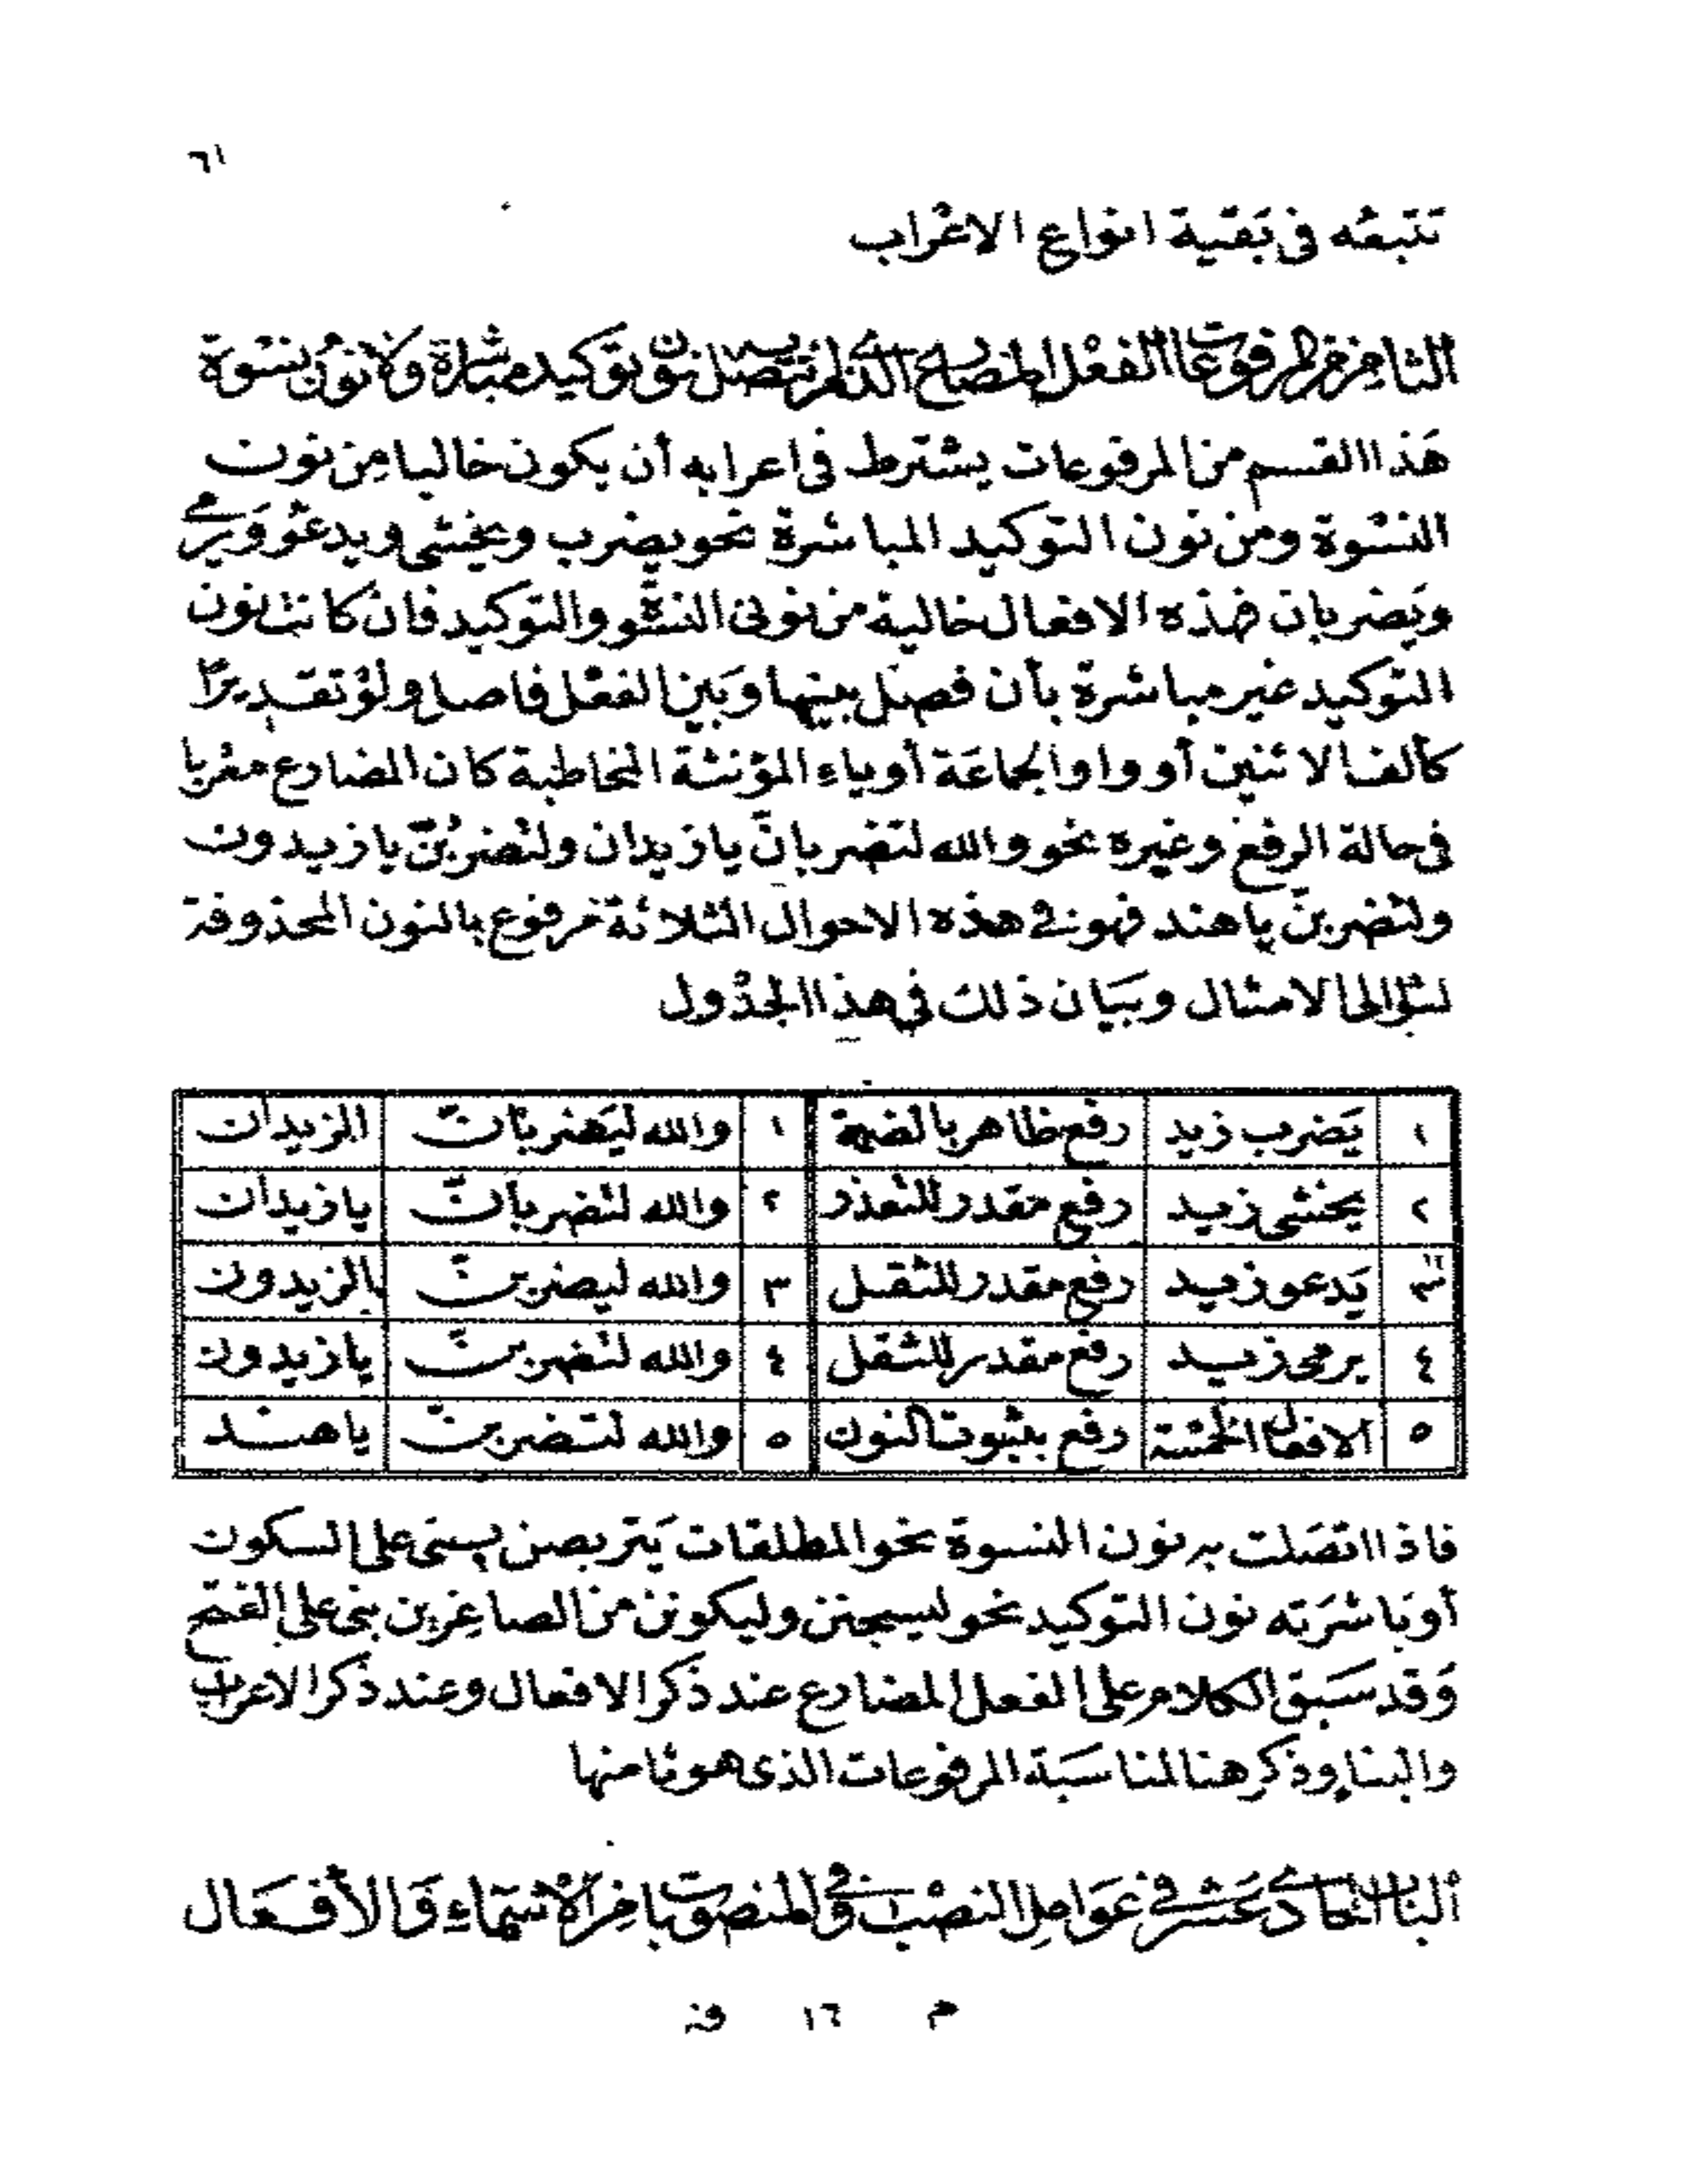 ٦١
تتبعه فى بَقيية انواع الاعْراب
الثامن من المرفوعات الفعْل المضارع الذى لم تتصل به نون توكيد مباشرة وَلا نونُ نسْوَة
هَذا القسم من المرفوعات يشترط فى اعرابه أن يكون خاليا مِن نون
النسْوة ومن نون التوكيد المباشرة نحو يضرب ويخشى ويدعْو وَيرمى
ويَضربان فهذه الافعال خالية من نونى النسْوة والتوكيد فان كانت نون
التوكيد غير مباشرة بأن فصَل بينها وَبين الفعْل فاصل ولوْ تقديرًا
كألف الاثنين أو واو الجماعَة أو ياء المؤنثة المخاطبة كان المضارع معْربا
فى حالة الرفع وغيره نحو والله لتضربانّ يازيدان ولتْضربُنّ يازيدون
ولتضربنّ ياهند فهو فى هذه الاحوال الثلاثة مرفوع بالنون المحذوفة
لتوالى الامثال وبيَان ذلك فى هذا الجدْول
١ يَضرب زيد رفع ظاهر بالضمة ١ والله ليَضربانّ الزيدان
٢ يخشى زيد رفع مقدر للتعذر ٢ والله لتضربانّ يازيدان
٣ يَدعو زيد رفع مقدر للثقل ٣ والله ليضربنّ الزيدون
٤ يرمى زيد رفع مقدر للثقل ٤ والله لتضربنّ يازيدون
٥ الافعال الخمسة رفع بثبوت النون ٥ والله لتضربنّ ياهند
فاذا اتصَلت به نون النسوة نحو المطلقات يَتربصن يبنى على السكون
أو بَاشرَته نون التوكيد نحو ليسجنن وليكونن من الصاغِرين بنى على الفتح
وَقد سَبق الكلام على الفعل المضارع عند ذكر الافعال وعند ذكر الاعراب
والبناء وذكر هنا لمناسَبة المرفوعات الذى هو ثامنها
البَاب الحَادى عَشر فى عَوَامِل النصْب وفى المنصوبَات مِن الأسْمَاءِ وَالأفعَال
م ١٦ فن